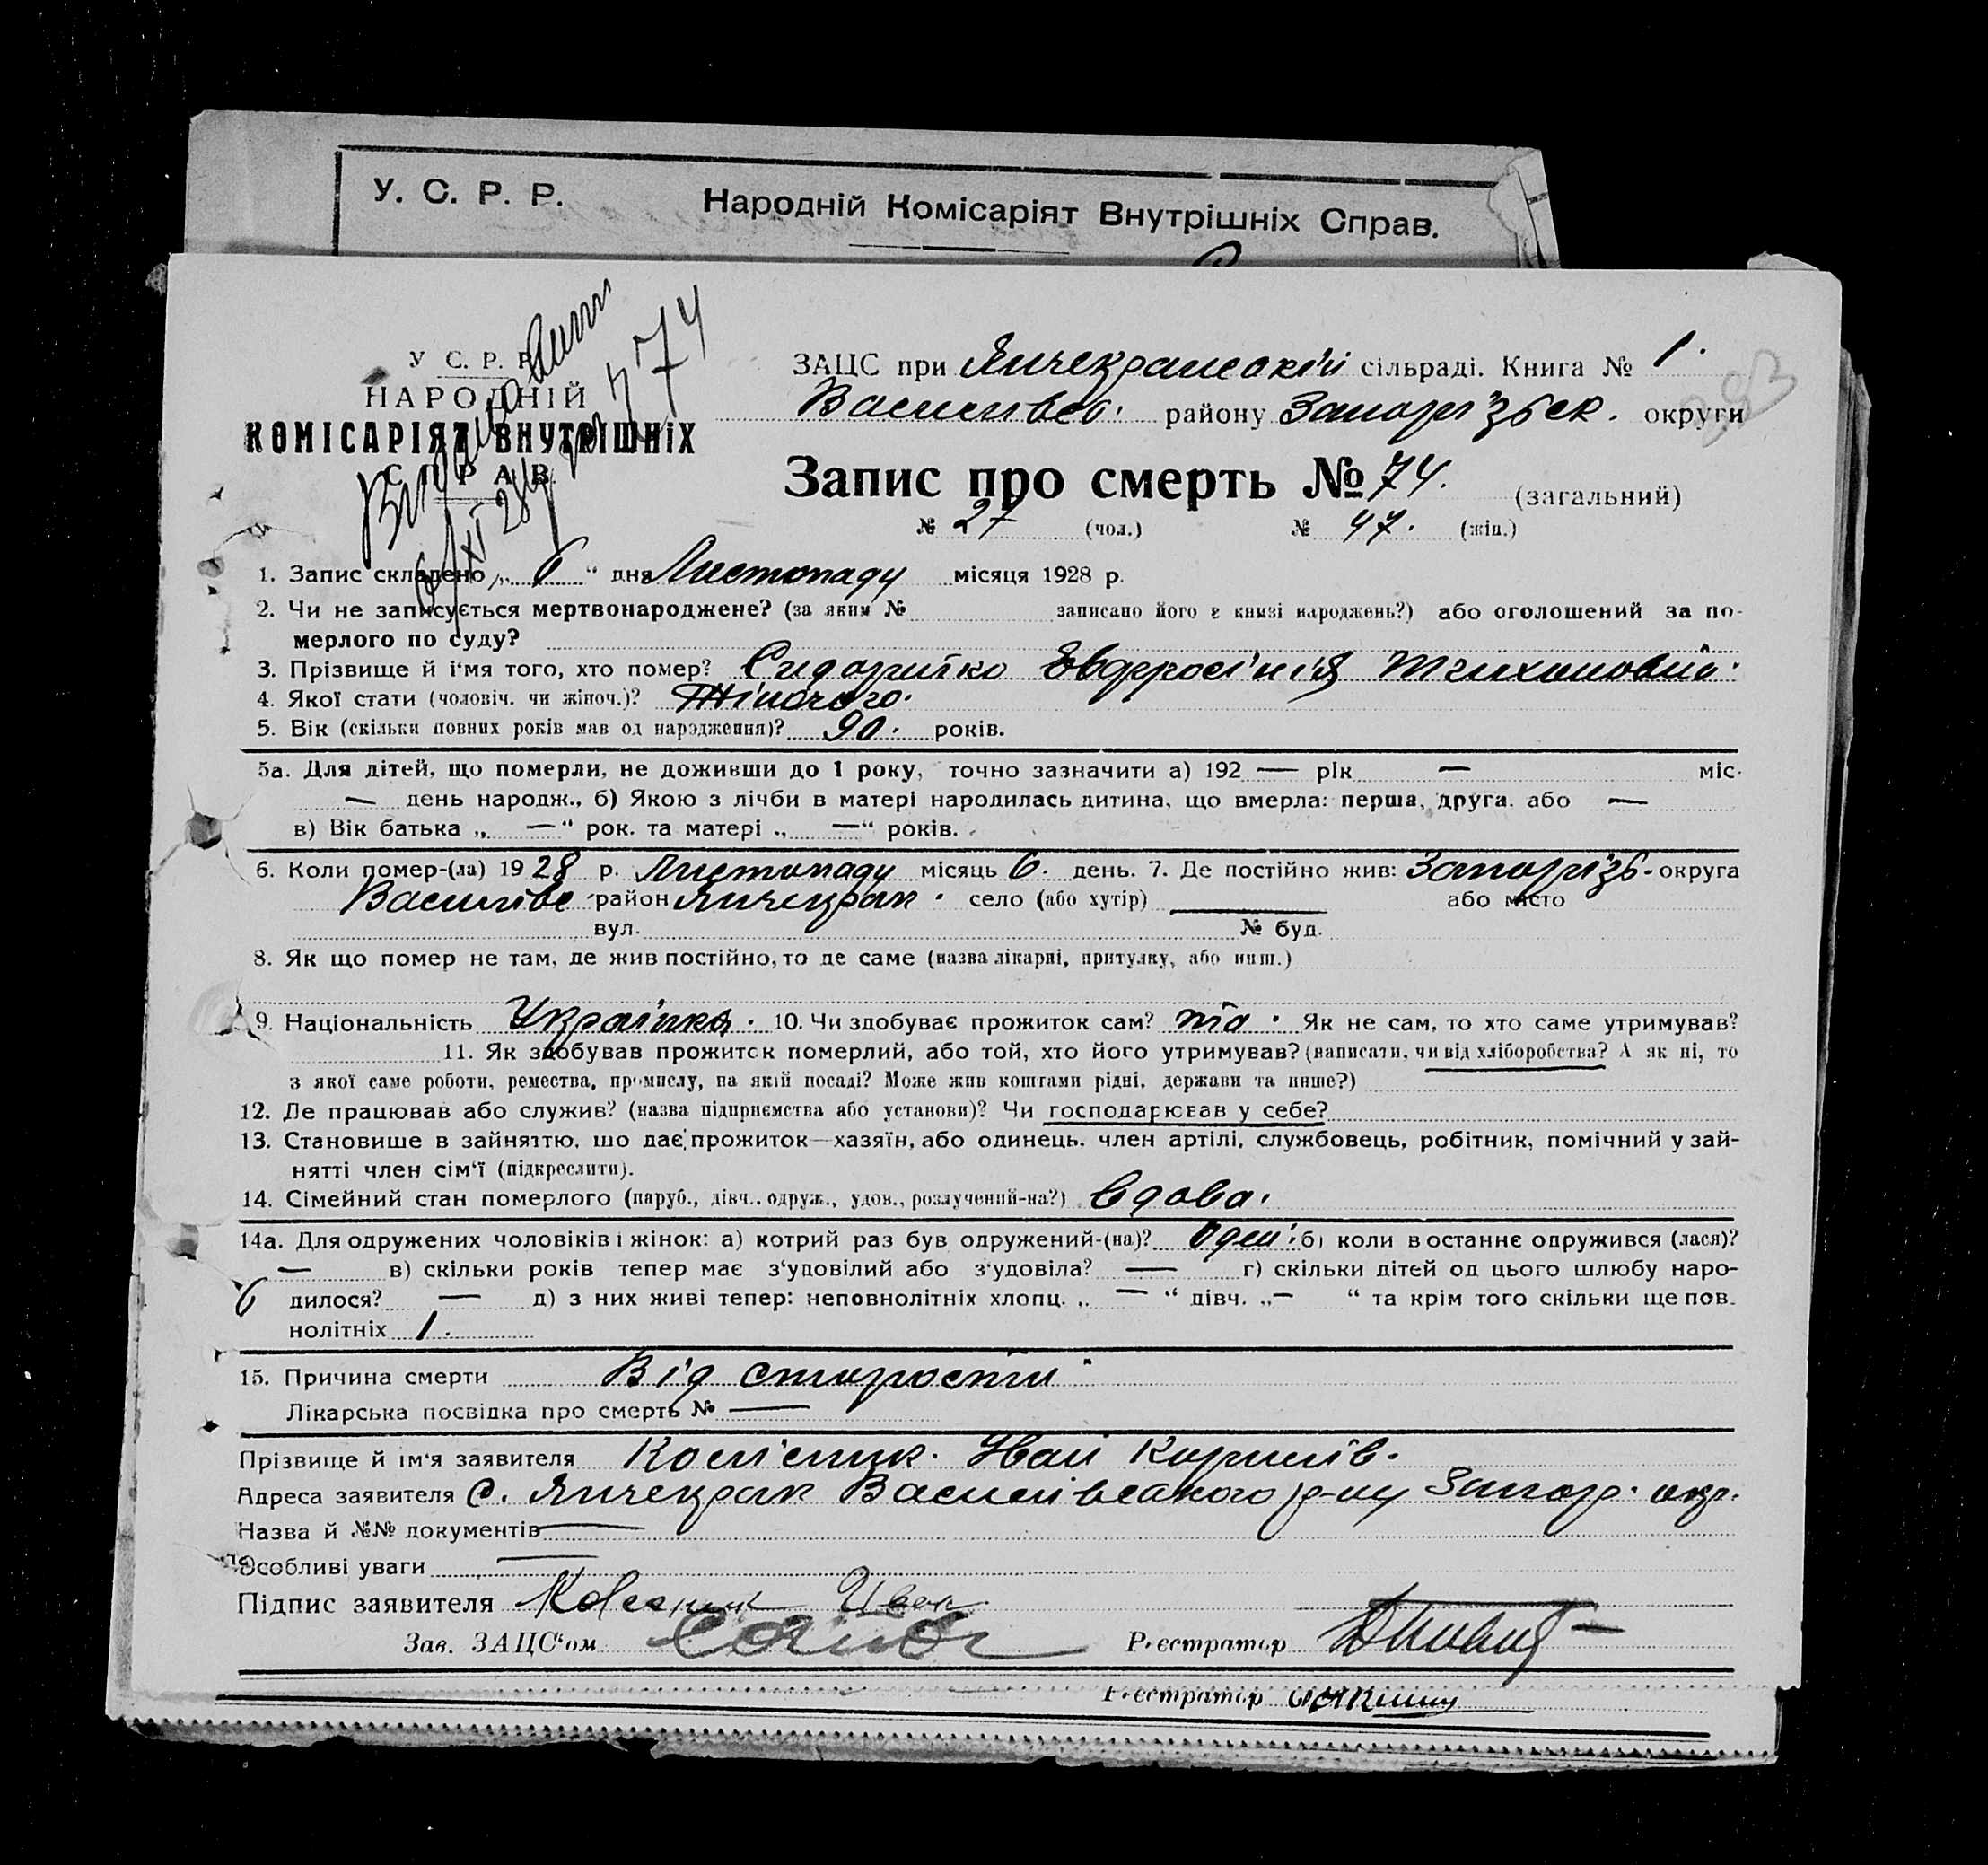 У. С. Р. Р. Народній Комісаріят Внутрішніх Справ.
У С. Р. Р.
НАРОДНІЙ
КОМІСАРІЯТ ВНУТРІШНІХ
СПРАВ
74
ЗАЦС при Янчекрансокій сільраді. Книга № 1.
Василивсь. району Запорізьк. округи
Запис про смерть № 74. (загальний)
№ 27 (чол.) № 47. (жін.)
1. Запис складено „ 6 “ дня Листопаду місяця 1928 р.
2. Чи не записується мертвонароджене? (за яким № записано його в книзі народжень?) або оголошений за по-
мерлого по суду?
3. Прізвище й і‘мя того, хто помер? Сидоренко Евфросінія Тихоновна.
4. Якої стати (чоловіч. чи жіноч.)? Жіночого.
5. Вік (скільки повних років мав од народження)? 90. років.
5а. Для дітей, що померли, не доживши до 1 року, точно зазначити а) 192 — рік — міс.
— день народж., б) Якою з лічби в матері народилась дитина, що вмерла: перша, друга. або —
в) Вік батька „ — “ рок. та матері „ — “ років.
6. Коли помер-(ла) 1928 р. Листопаду місяць 6. день. 7. Де постійно жив: Запорізь. округа
Васильівс район Янчекрак. село (або хутір) — або місто
вул. № буд.
8. Як що помер не там, де жив постійно, то де саме (назва лікарні, притулку, або инш.)
9. Національність Українка. 10. Чи здобуває прожиток сам? та. Як не сам, то хто саме утримував?
11. Як здобував прожиток померлий, або той, хто його утримував? (написати, чи від хліборобства? А як ні, то
з якої саме роботи, ремества, промислу, на якій посаді? Може жив коштами рідні, держави та инше?)
12. Де працював або служив? (назва підприємства або установи)? Чи господарював у себе?
13. Становище в зайняттю, що дає прожиток—хазяїн, або одинець, член артілі, службовець, робітник, помічний у зай-
нятті член сім‘ї (підкреслити).
14. Сімейний стан померлого (паруб., дівч., одруж., удов., розлучений-на?) Вдова.
14а. Для одружених чоловіків і жінок: а) котрий раз був одружений-(на)? Один. б) коли востаннє одружився (лася)?
— в) скільки років тепер має з‘удовілий або з‘удовіла? — г) скільки дітей од цього шлюбу наро-
6 дилося? — д) з них живі тепер: неповнолітніх хлопц. „ — “ дівч. „ — “ та крім того скільки ще пов.
нолітніх 1.
15. Причина смерти Від старости
Лікарська посвідка про смерть № —
Прізвище й ім‘я заявителя Колісник. Іван Кирилів.
Адреса заявителя с. Янчекрак Василівського р-ну Запор. окр.
Назва й №№ документів —
Особливі уваги —
Підпис заявителя Колесник Иван
Зав. ЗАЦС‘ом Реєстратор
Реєстратор